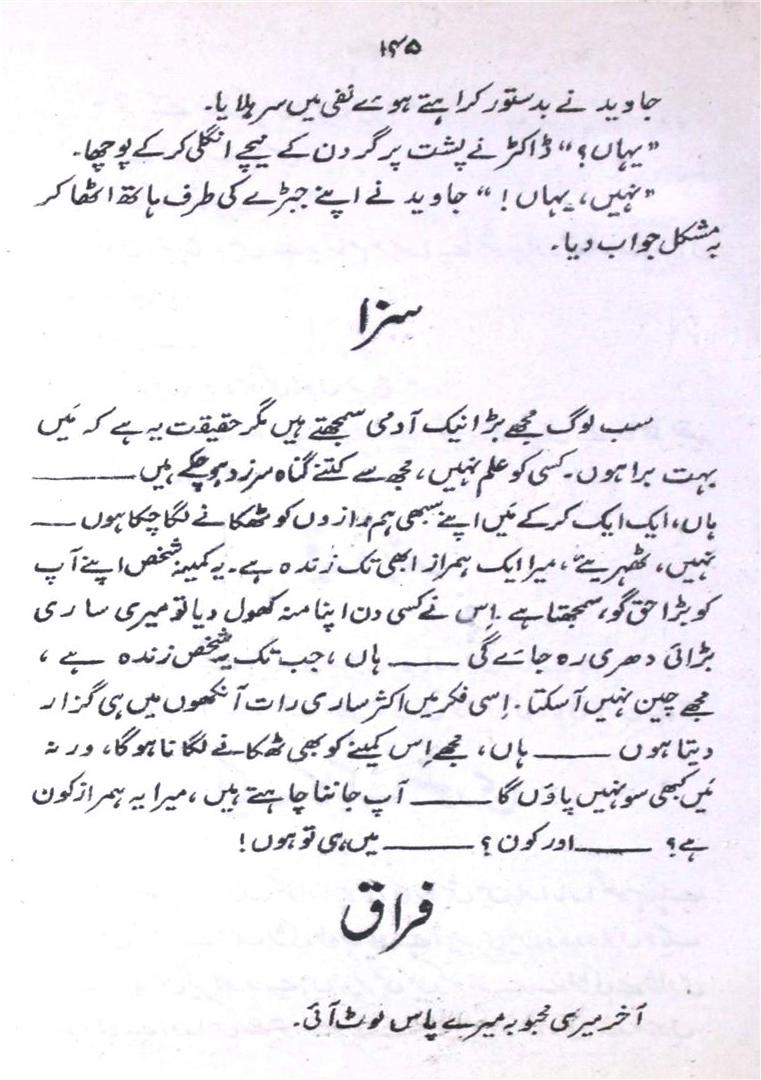 ۱۴۵
جاوید نے بدستور کراہتے ہوئے نفی میں سر ہلایا۔
”یہاں؟“ ڈاکٹر نے پشت پر گردن کے نیچے انگلی کر کے پوچھا۔
”نہیں، یہاں!“ جاوید نے اپنے جبڑے کی طرف ہاتھ اٹھا کر
بہ مشکل جواب دیا۔
سزا
سب لوگ مجھے بڑا نیک آدمی سمجھتے ہیں مگر حقیقت یہ ہے کہ مَیں
بہت برا ہوں۔ کسی کو علم نہیں، مجھ سے کتنے گناہ سرزد ہو چکے ہیں ——
ہاں، ایک ایک کر کے مَیں اپنے سبھی ہم رازوں کو ٹھکانے لگا چکا ہوں ——
نہیں، ٹھہریے، میرا ایک ہمراز ابھی تک زندہ ہے۔ یہ کمینہ شخص اپنے آپ
کو بڑا حق گو، سمجھتا ہے۔ اِس نے کسی دن اپنا منہ کھول دیا تو میری ساری
بڑائی دھری رہ جائے گی —— ہاں، جب تک یہ شخص زندہ ہے،
مجھے چین نہیں آ سکتا۔ اِسی فکر میں اکثر ساری رات آنکھوں میں ہی گزار
دیتا ہوں —— ہاں، مجھے اِس کمینے کو بھی ٹھکانے لگانا ہوگا، ورنہ
مَیں کبھی سو نہیں پاؤں گا —— آپ جاننا چاہتے ہیں، میرا یہ ہمراز کون
ہے؟ —— اور کون؟ —— میں ہی تو ہوں!
فراق
آخر میری محبوبہ میرے پاس لوٹ آئی۔